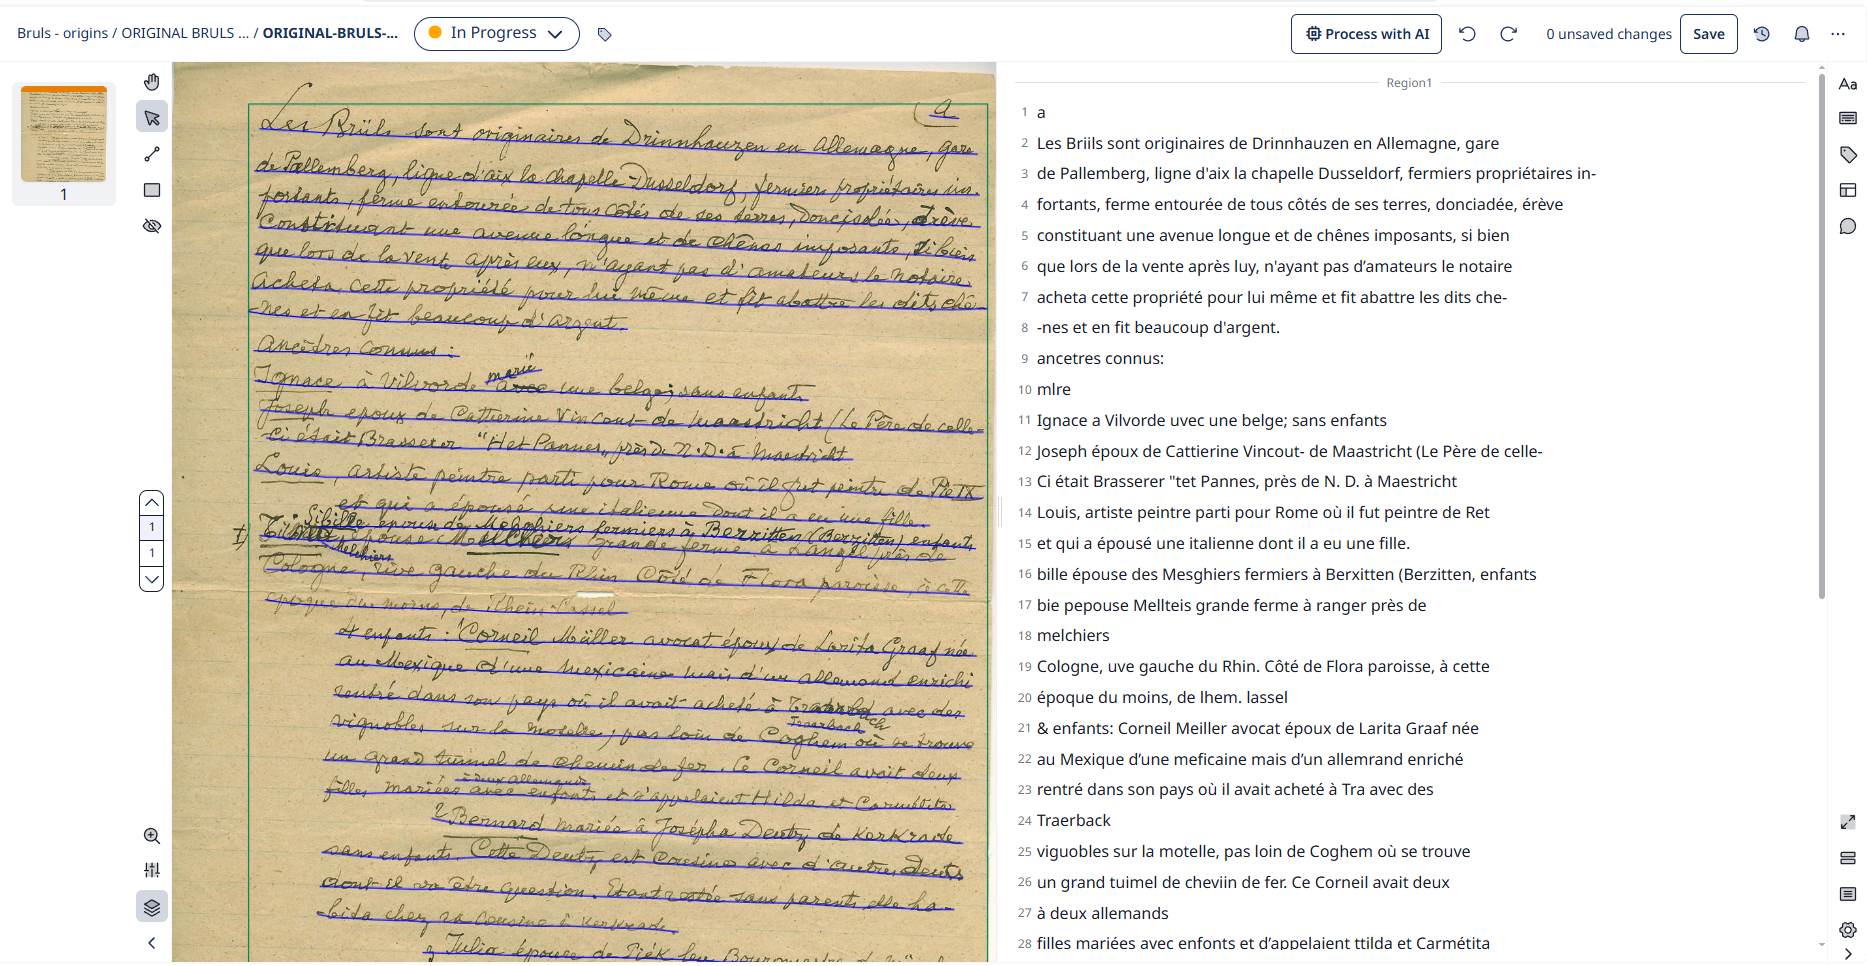 Bruls - origins / ORIGINAL BRULS ... / ORIGINAL-BRULS-...
In Progress
Process with AI
0 unsaved changes
Save
1
1
1
(a
Les Brüls sont originaires de Drinnhauzen en Allemagne, gare
de Pallemberg, ligne d'aix la chapelle-Dusseldorf, fermiers propriétaires im-
portants, ferme entourée de tous côtés de ses terres, donc isolée, drève
constituant une avenue longue et de chênes imposants, si bien
que lors de la vente après eux, n'ayant pas d'amateurs le notaire
acheta cette propriété pour lui même et fit abattre les dits chê-
-nes et en fit beaucoup d'argent.
Ancêtres connus :
marié
Ignace à Vilvorde avec une belge; sans enfants
Joseph epoux de Catherine Vincent de Maastricht (Le Père de celle-
ci était Brasseur "Het Pannes" près de N.D. à Maestricht
Louis, artiste peintre parti pour Rome où il fut peintre de Pie IX
et qui a épousé une italienne dont il a eu une fille.
Sibille épouse de Melchiers fermiers à Berzitten (Berzitten) enfants
épouse Melchers grande ferme à Langel près de
Melchiers
Cologne, rive gauche du Rhin Côté de Flora paroisse, à cette
époque du moins, de Rhein-Cassel
4 enfants : 1 Corneil Müller avocat époux de Larita Graaf née
au Mexique d'une mexicaine mais d'un allemand enrichi
rentré dans son pays où il avait acheté à avec des
Traerbach
vignobles sur la moselle, pas loin de Coghem où se trouve
un grand tunnel de chemin de fer. Ce Corneil avait deux
à deux allemands
filles mariées avec enfants et s'appelaient Hilda et Carmélita
2 Bernard mariés à Josépha Deutz de Kerkrade
sans enfants. Cette Deutz est cousine avec d'autres Deutz
dont il va être question. Etant restée sans parents elle ha-
-bita chez sa cousine à Kerkrade.
3 Julia épouse de
Region1
1 a
2 Les Briils sont originaires de Drinnhauzen en Allemagne, gare
3 de Pallemberg, ligne d'aix la chapelle Dusseldorf, fermiers propriétaires in-
4 fortants, ferme entourée de tous côtés de ses terres, donciadée, érève
5 constituant une avenue longue et de chênes imposants, si bien
6 que lors de la vente après luy, n'ayant pas d'amateurs le notaire
7 acheta cette propriété pour lui même et fit abattre les dits che-
8 -nes et en fit beaucoup d'argent.
9 ancetres connus:
10 mlre
11 Ignace a Vilvorde uvec une belge; sans enfants
12 Joseph époux de Cattierine Vincout- de Maastricht (Le Père de celle-
13 Ci était Brasserer "tet Pannes, près de N. D. à Maestricht
14 Louis, artiste peintre parti pour Rome où il fut peintre de Ret
15 et qui a épousé une italienne dont il a eu une fille.
16 bille épouse des Mesghiers fermiers à Berxitten (Berzitten, enfants
17 bie pepouse Mellteis grande ferme à ranger près de
18 melchiers
19 Cologne, uve gauche du Rhin. Côté de Flora paroisse, à cette
20 époque du moins, de lhem. lassel
21 & enfants: Corneil Meiller avocat époux de Larita Graaf née
22 au Mexique d'une meficaine mais d'un allemrand enriché
23 rentré dans son pays où il avait acheté à Tra avec des
24 Traerback
25 viguobles sur la motelle, pas loin de Coghem où se trouve
26 un grand tuimel de cheviin de fer. Ce Corneil avait deux
27 à deux allemands
28 filles mariées avec enfants et d'appelaient ttilda et Carmétita
Aa